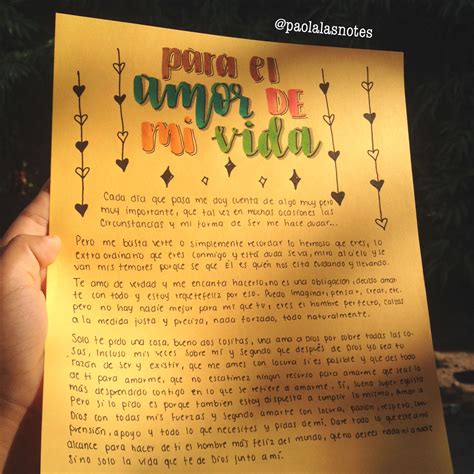 @paolalasnotes
para el
amor DE
mi vida
Cada día que pasa me doy cuenta de algo muy pero
muy importante, que tal vez en muchas ocasiones las
circunstancias y mi forma de ser me hace dudar...
Pero me basta verte o simplemente recordar lo hermoso que eres, lo
extraordinario que eres conmigo y esta duda se va, miro al cielo y se
van mis temores porque se que él es quien nos esta cuidando y llevando.
Te amo de verdad y me encanta hacerlo, no es una obligación, decido amar
te con todo y estoy requetefeliz por eso. Puedo imaginar, pensar, crear, etc.
pero no hay nadie mejor para mi que tu, eres el hombre perfecto, calzas
a la medida justa y preciza, nada forzado, todo naturalmente.
Solo te pido una cosa, bueno dos cositas, una ama a Dios por sobre todas las co-
sas, incluso mil veces sobre mi y segundo que después de Dios yo sea tu
razón de ser y existir, que me ames con locura si es posible y que des todo
de ti para amarme, que no escatimes ningun recurso para amarme que seas lo
más desprendido contigo en lo que se refiere a amarme. Sí, sueno super egoista
Pero si lo pido es porque tambien estoy dispuesta a cumplir lo mismo, Amar a
Dios con todas mis fuerzas y segundo amarte con locura, pasión, respeto, com
prensión, apoyo y todo lo que necesites y pidas de mi. Dare todo lo que este a mi
alcance para hacer de ti el hombre más feliz del mundo, que no desees nada ni a nadie
si no solo la vida que te de Dios junto a mi.